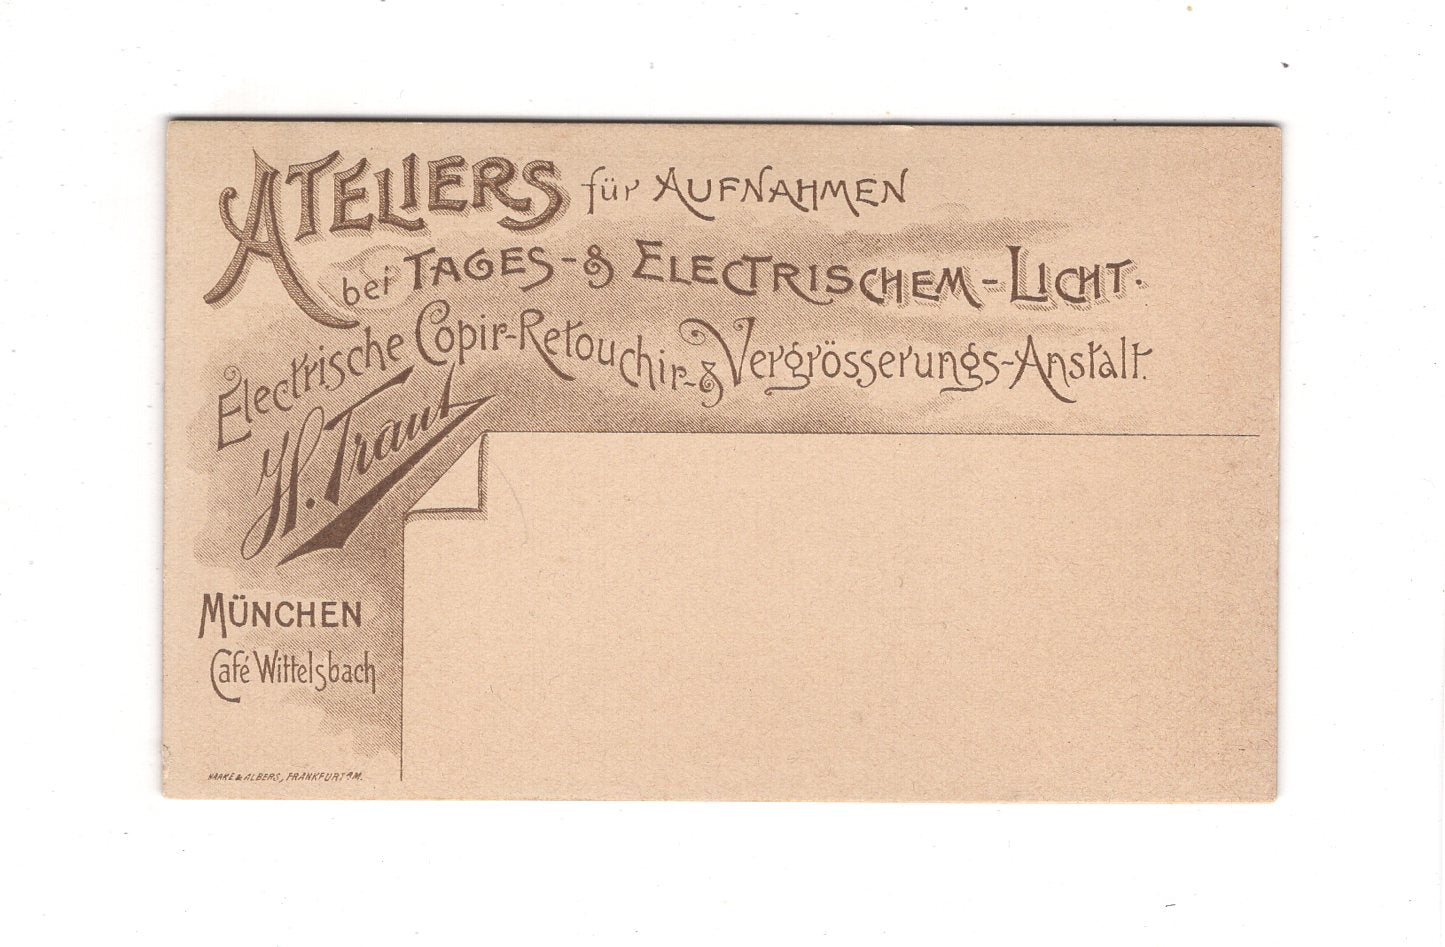 ATELIERS für AUFNAHMEN
bei TAGES- & ELECTRISCHEM-LICHT.
Electrische Copir-Retouchir- & Vergrösserungs-Anstalt.
H. Traut
MÜNCHEN
Café Wittelsbach
HAAKE & ALBERS, FRANKFURT a/M.